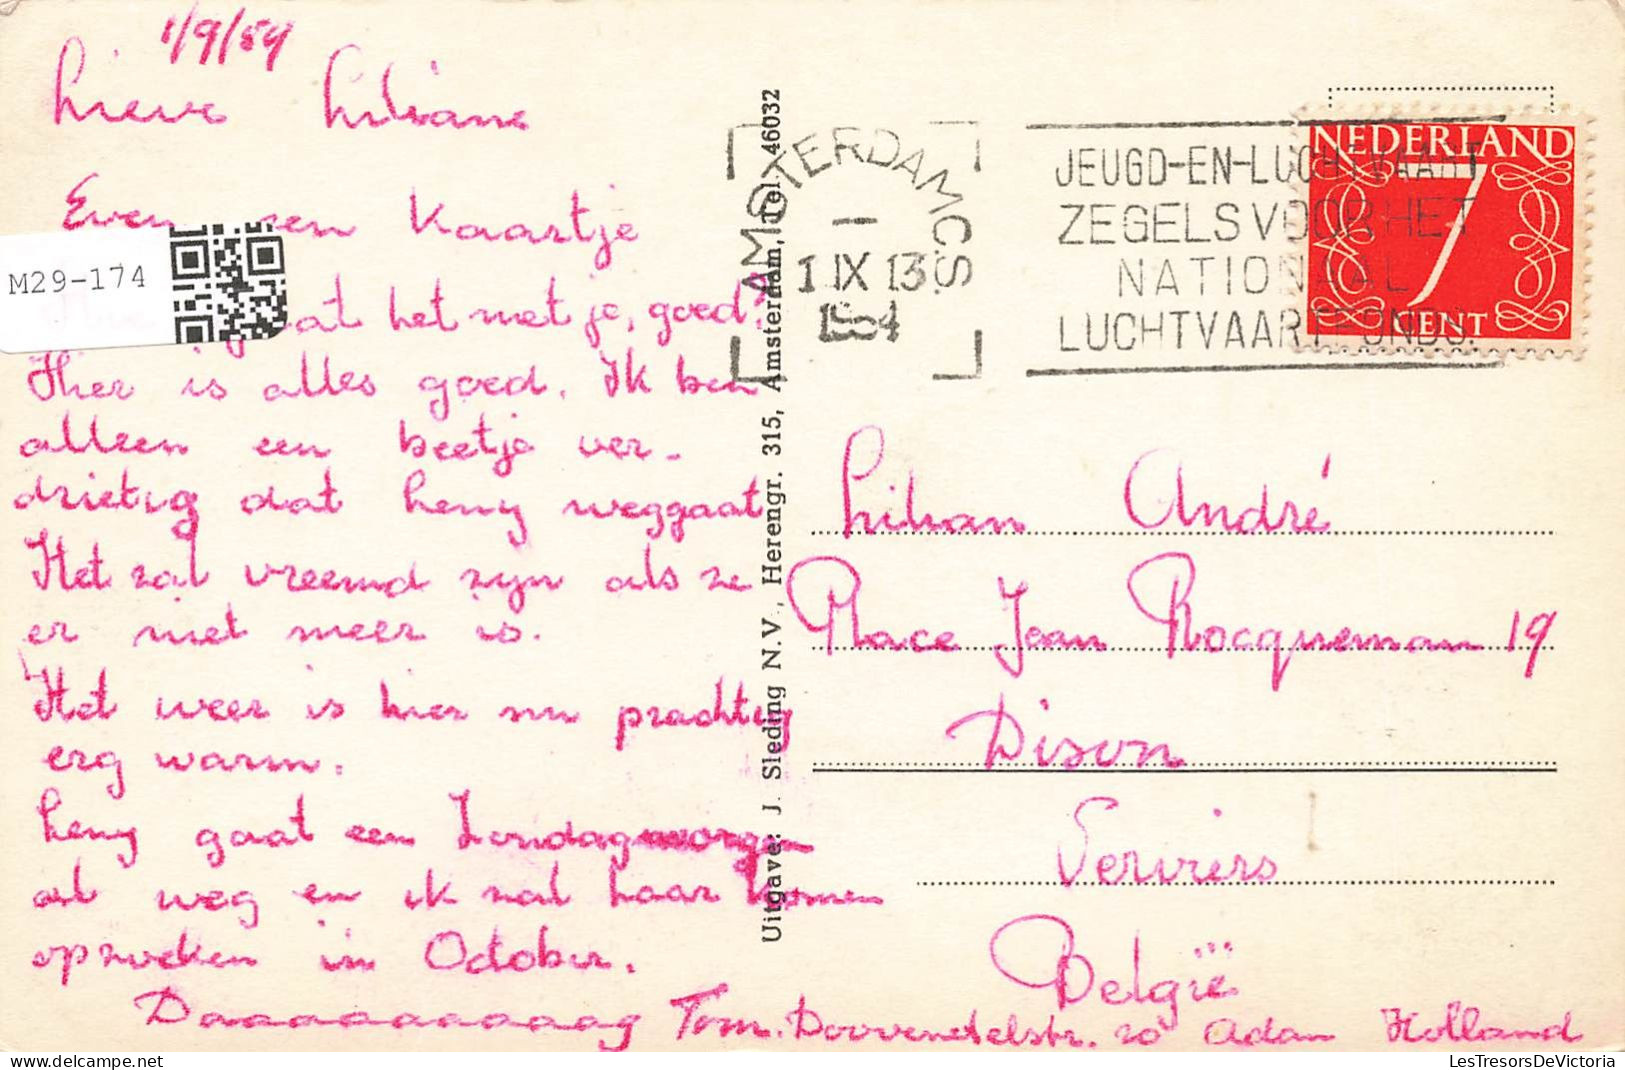 1/9/54
Lieve Liliane
Even een Kaartje
gaat het met je, goed?
Hier is alles goed. Ik ben
alleen een beetje ver-
drietig dat Leny weggaat
Het zal vreemd zijn als ze
er niet meer is.
Het weer is hier nu prachtig
erg warm.
Leny gaat een Zondagmorgen
al weg en ik zal haar komen
opzoeken in October.
Daaaaaaaaaag Tom. 20 Adam Holland
M29-174
Uitgave: J. Sleding N.V., Herengr. 315, Amsterdam, Tel. 46032
AMSTERDAM C.S.
1 IX 13
1954
JEUGD-EN-LUCHTVAART
ZEGELS VOOR HET
NATIONAAL
LUCHTVAARTFONDS.
NEDERLAND
7
CENT
Lilian André
Place Jean Rocqueman 19
Dison
Verviers
België
LesTresorsDeVictoria
delcampe.net